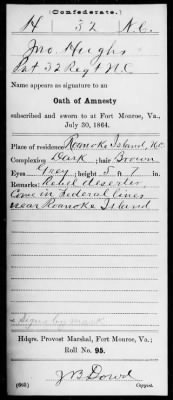 (Confederate.)
H 32 N.C.
Jno Heighs
Pvt 32 Regt NC
Name appears as signature to an
Oath of Amnesty
subscribed and sworn to at Fort Monroe, Va.,
July 30, 1864.
Place of residence Roanoke Island, NC
Complexion Dark; hair Brown
Eyes Grey; height 5 ft. 7 in.
Remarks: Rebel deserter,
Came in Federal lines
near Roanoke Island
Signs by mark
Hdqrs. Provost Marshal, Fort Monroe, Va.;
Roll No. 95.
J B Dowd
(665) Copyist.